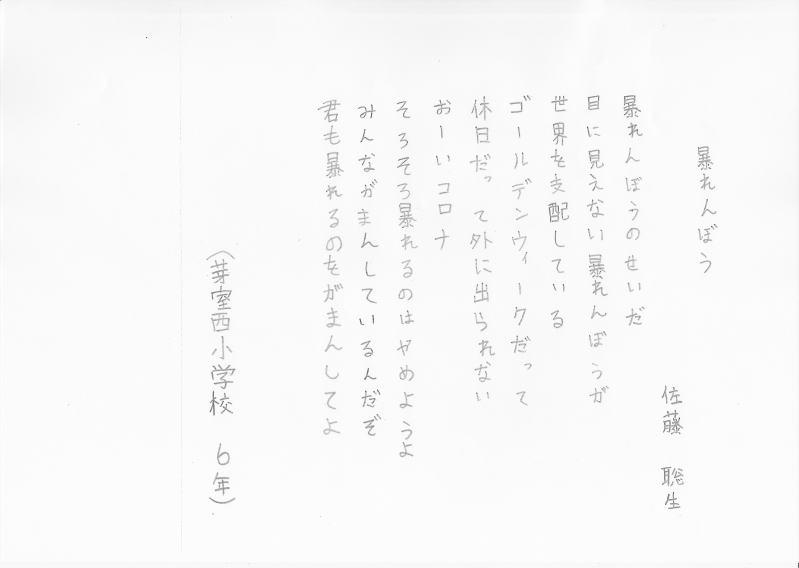 暴れんぼう
佐藤 聡生
暴れんぼうのせいだ
目に見えない暴れんぼうが
世界を支配している
ゴールデンウィークだって
休日だって外に出られない
おーいコロナ
そろそろ暴れるのはやめようよ
みんながまんしているんだぞ
君も暴れるのをがまんしてよ
（芽室西小学校 6年）